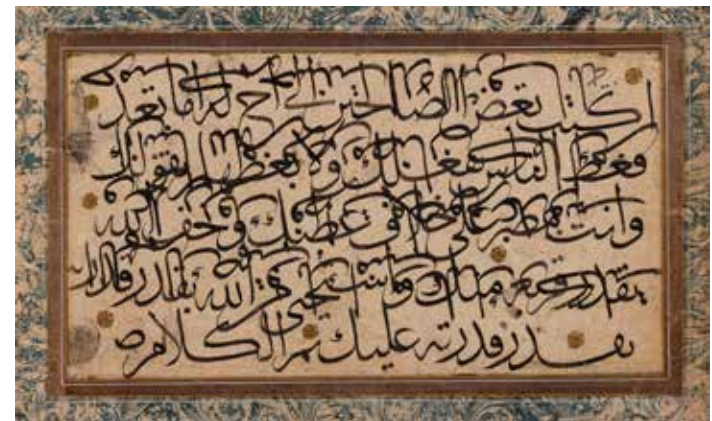 كتب بعض الصالحين الى اخ له اما بعد
فعظ الناس بفعلك ولا تعظهم بقولك
وانت مصر على خلاف عظتك وخف الله
بقدر قربه منك واستحيى من الله
بقدر قدرته عليك تم الكلام